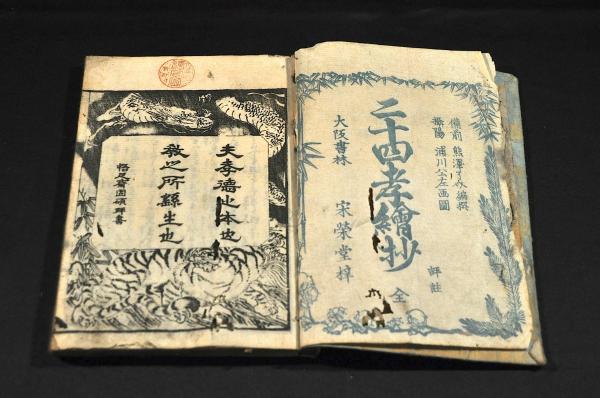 備前 熊澤 編撰
浦川公左画圖
評註
二十四孝繪抄
全
大阪書林 宋榮堂梓
夫孝德之本也
教之所繇生也